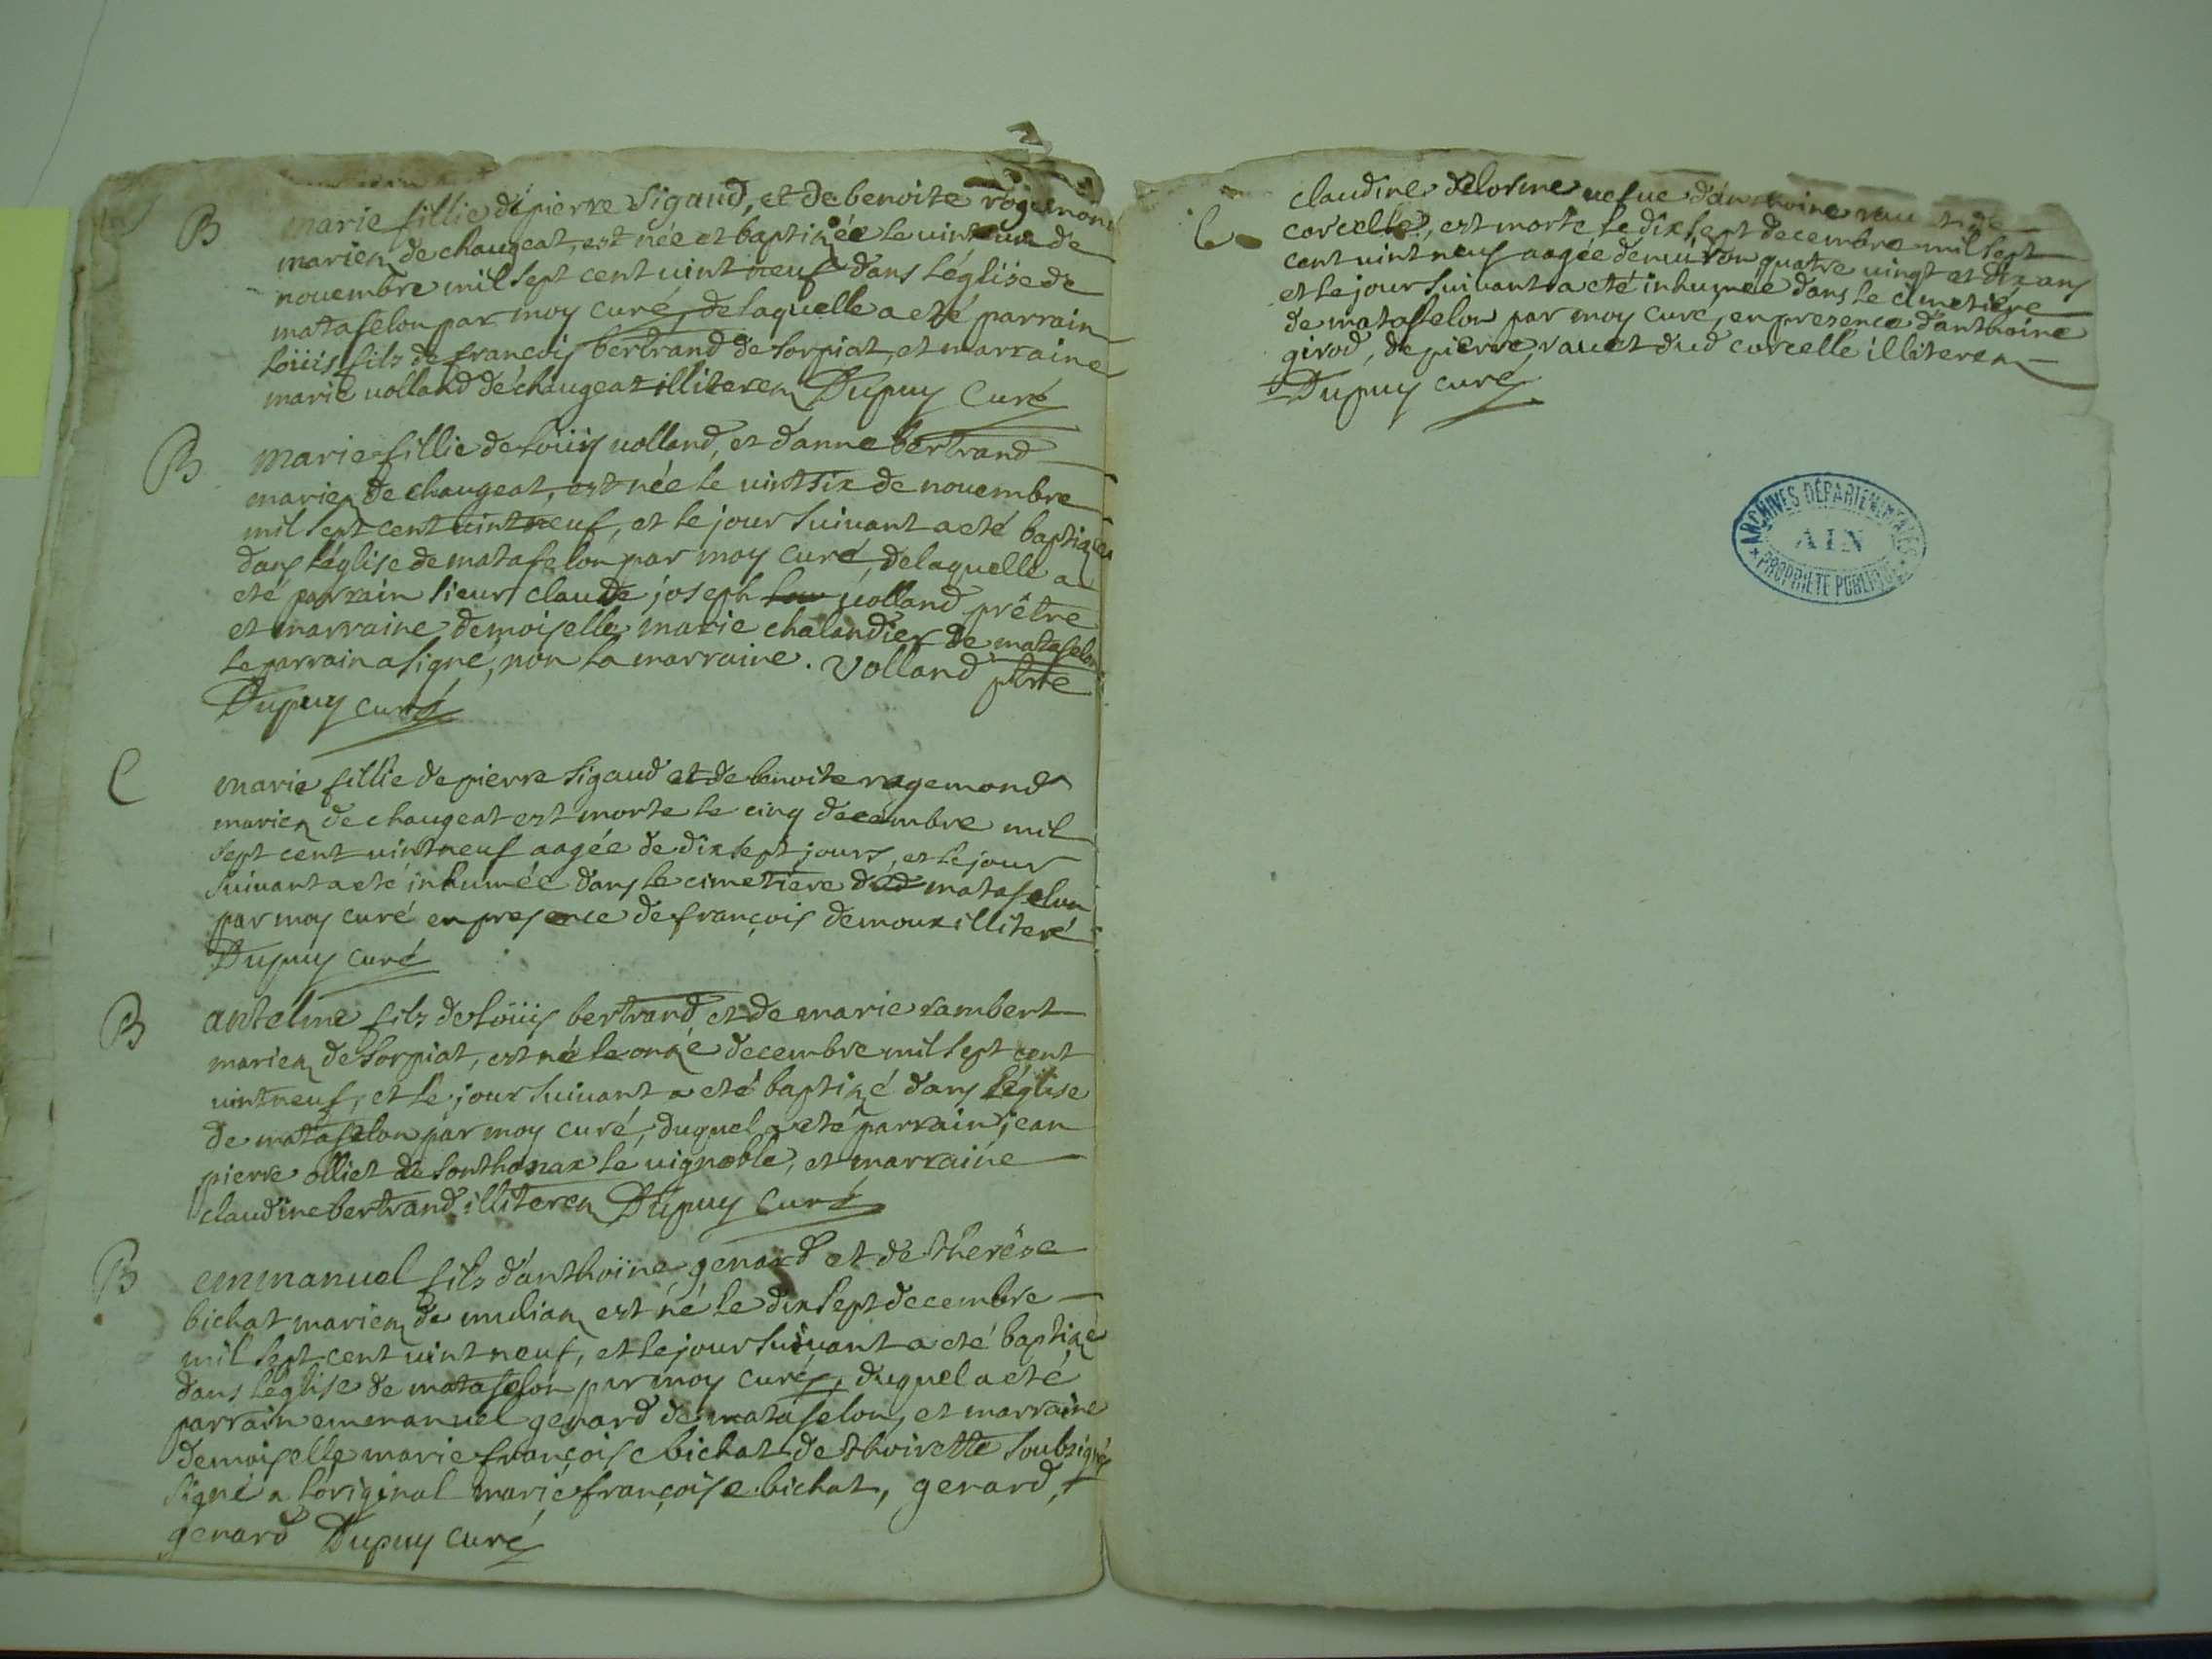 B
marie fillie de pierre Sigaud, et de benoite rogemond
mariez de chaugeat, est née et baptizée le vint un de
nouembre mil sept cent uint neuf dans l'église de
matafelon par moy curé, de laquelle a eté parrain
loüis fils de françois bertrand de sorpiat, et marraine
marie uolland de chaugeat illiterez Dupuy Curé
B
marie fillie de loüis uolland, et d'anne bertrand
mariez de chaugeat, est née le uint six de nouembre
mil sept cent uint neuf, et le jour suiuant a eté baptizée
dans l'église de matafelon par moy curé, de laquelle a
eté parrain sieur claude joseph uolland prêtre
et marraine demoiselle marie chalandier de matafelon
le parrain a signé, non la marraine. Volland ptre
Dupuy curé
C
marie fillie de pierre sigaud et de benoite rogemond
mariez de chaugeat est morte le cinq decembre mil
sept cent uint neuf aagée de dix sept jours, et le jour
suiuant a eté inhumée dans le cimetiere dud matafelon
par moy curé en presence de françois demoux illiteré
Dupuy curé
B
antelme fils de loüis bertrand, et de marie rambert
mariez de sorpiat, est né le onze decembre mil sept cent
uint neuf, et le jour suiuant a eté baptizé dans l'église
de matafelon par moy curé, duquel a eté parrain jean
pierre olliet de sonthonax le uignoble, et marraine
claudine bertrand illiterez Dupuy Curé
B
emmanuel fils d'anthoine genard et de therése
bichat mariez de mulian est né le dix sept decembre
mil sept cent uint neuf, et le jour suiuant a eté baptizé
dans l'église de matafelon par moy curé, duquel a eté
parrain emmanuel genard de matafelon, et marraine
demoiselle marie françoise bichat de thoirette soubsignés
signé a l'original marie françoise bichat, genard,
genard Dupuy curé
C
claudine delorme uefue d'anthoine rauet de
corcelle, est morte le dix sept decembre mil sept
cent uint neuf aagée d'enuiron quatre uingt et dix ans
et le jour suiuant a eté inhumée dans le cimetiére
de matafelon par moy curé, en presence d'anthoine
girod, de pierre rauet dud corcelle illiterez
Dupuy curé
ARCHIVES DÉPARTEMENTALES
AIN
PROPRIÉTÉ PUBLIQUE